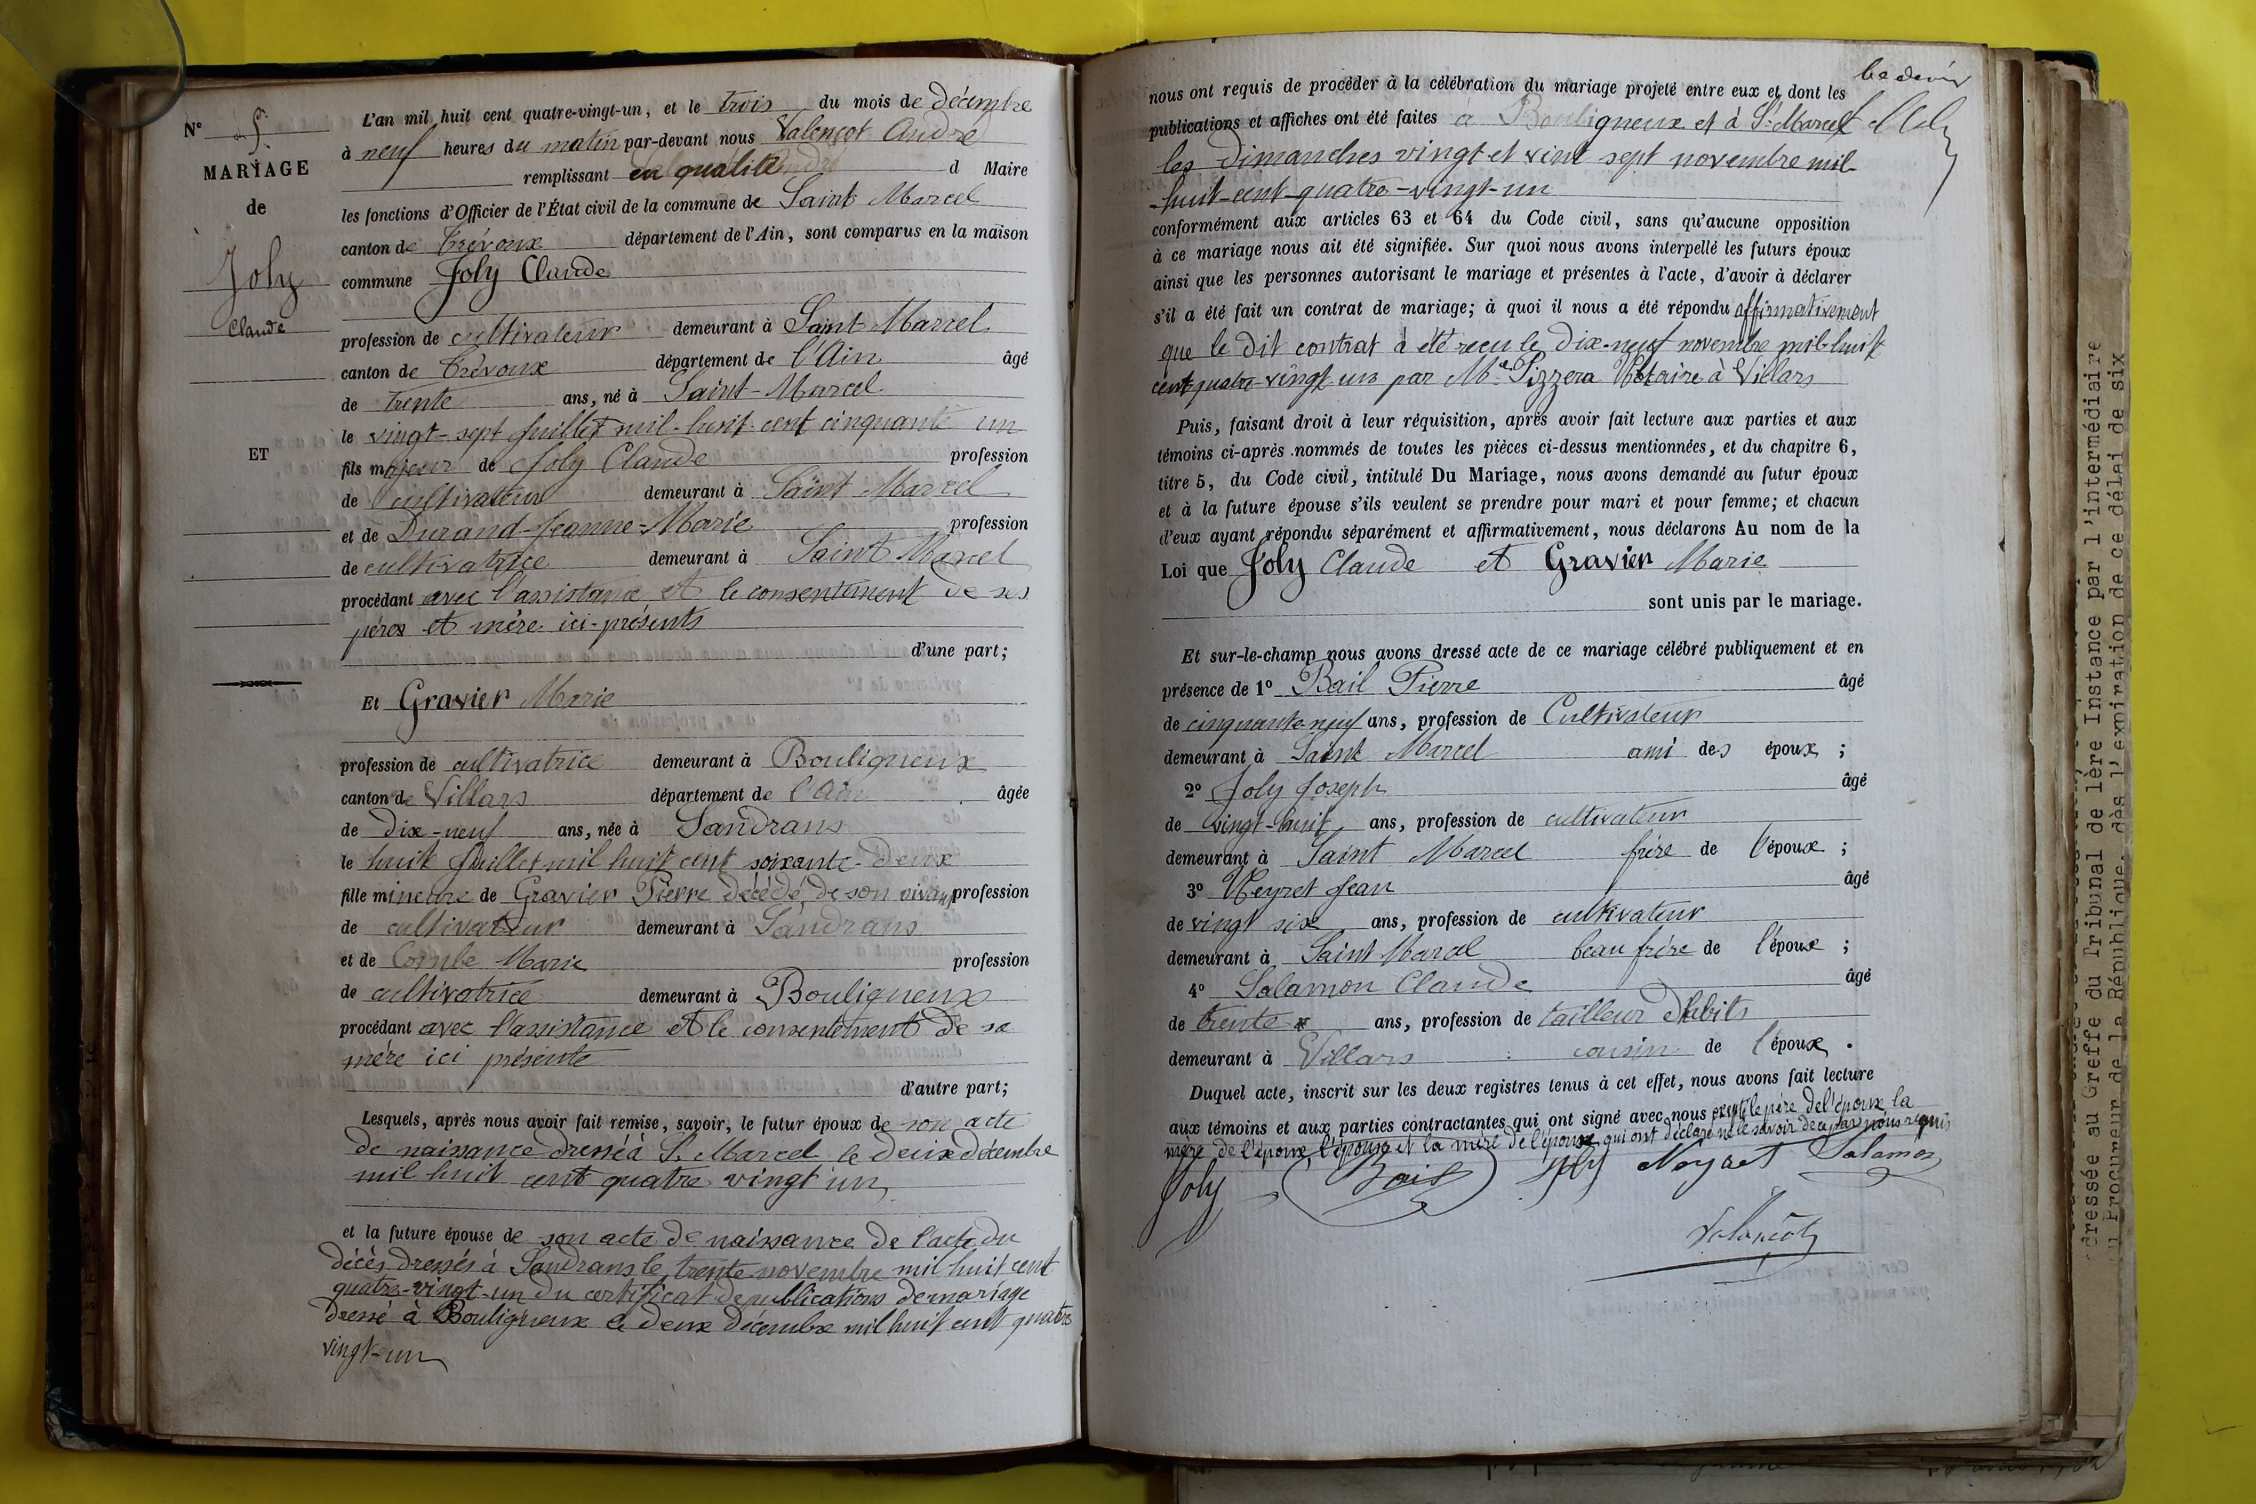 N° 5
MARIAGE
de
Joly
Claude
ET
L'an mil huit cent quatre-vingt-un, et le trois du mois de décembre
à neuf heures du matin par-devant nous Valençot André
remplissant en qualité d Maire
les fonctions d'Officier de l'État civil de la commune de Saint Marcel
canton de Trévoux département de l'Ain, sont comparus en la maison
commune Joly Claude
profession de cultivateur demeurant à Saint Marcel
canton de Trévoux département de l'Ain âgé
de trente ans, né à Saint-Marcel
le vingt-sept Juillet mil-huit-cent cinquante un
fils majeur de Joly Claude profession
de cultivateur demeurant à Saint Marcel
et de Durand-Jeanne-Marie profession
de cultivatrice demeurant à Saint Marcel
procédant avec l'assistance et le consentement de ses
pères et mère ici-présents
d'une part;
Et Gravier Marie
profession de cultivatrice demeurant à Bouligneux
canton de Villars département de l'Ain âgée
de dix-neuf ans, née à Sandrans
le huit Juillet mil huit cent soixante-deux
fille mineure de Gravier Pierre décédé, de son vivant profession
de cultivateur demeurant à Sandrans
et de Combe Marie profession
de cultivatrice demeurant à Bouligneux
procédant avec l'assistance et le consentement de sa
mère ici présente
d'autre part;
Lesquels, après nous avoir fait remise, savoir, le futur époux de son acte
de naissance dressé à S. Marcel le deux décembre
mil huit cent quatre vingt un
et la future épouse de son acte de naissance de l'acte du
décès dressés à Sandrans le trente novembre mil huit cent
quatre-vingt-un du certificat de publications de mariage
dressé à Bouligneux le deux décembre mil huit cent quatre
vingt-un
nous ont requis de procéder à la célébration du mariage projeté entre eux et dont les
publications et affiches ont été faites à Bouligneux et à St Marcel
les dimanches vingt et vint sept novembre mil-
huit-cent-quatre-vingt-un
conformément aux articles 63 et 64 du Code civil, sans qu'aucune opposition
à ce mariage nous ait été signifiée. Sur quoi nous avons interpellé les futurs époux
ainsi que les personnes autorisant le mariage et présentes à l'acte, d'avoir à déclarer
s'il a été fait un contrat de mariage; à quoi il nous a été répondu affirmativement
que le dit contrat à été reçu le dix-neuf novembre mil-huit
cent quatre-vingt un par Me Pizzera Notaire à Villars
Puis, faisant droit à leur réquisition, après avoir fait lecture aux parties et aux
témoins ci-après nommés de toutes les pièces ci-dessus mentionnées, et du chapitre 6,
titre 5, du Code civil, intitulé Du Mariage, nous avons demandé au futur époux
et à la future épouse s'ils veulent se prendre pour mari et pour femme; et chacun
d'eux ayant répondu séparément et affirmativement, nous déclarons Au nom de la
Loi que Joly Claude et Gravier Marie
sont unis par le mariage.
Et sur-le-champ nous avons dressé acte de ce mariage célébré publiquement et en
présence de 1° Bail Pierre âgé
de cinquante-neuf ans, profession de Cultivateur
demeurant à Saint Marcel ami des époux ;
2° Joly Joseph âgé
de vingt-huit ans, profession de cultivateur
demeurant à Saint Marcel frère de l'époux ;
3° Neyret Jean âgé
de vingt six ans, profession de cultivateur
demeurant à Saint Marcel beau frère de l'époux ;
4° Salamon Claude âgé
de trente ans, profession de tailleur d'habits
demeurant à Villars cousin de l'époux .
Duquel acte, inscrit sur les deux registres tenus à cet effet, nous avons fait lecture
aux témoins et aux parties contractantes qui ont signé avec nous excepté le père de l'époux, la
mère de l'époux l'épouse et la mère de l'épouse qui ont déclaré ne le savoir de ce par nous requis
Joly Bail Joly Neyret Salamon
Valençot
dressée au Greffe du Tribunal de 1ère Instance par l'intermédiaire
Procureur de la République, dès l'expiration de ce délai de six